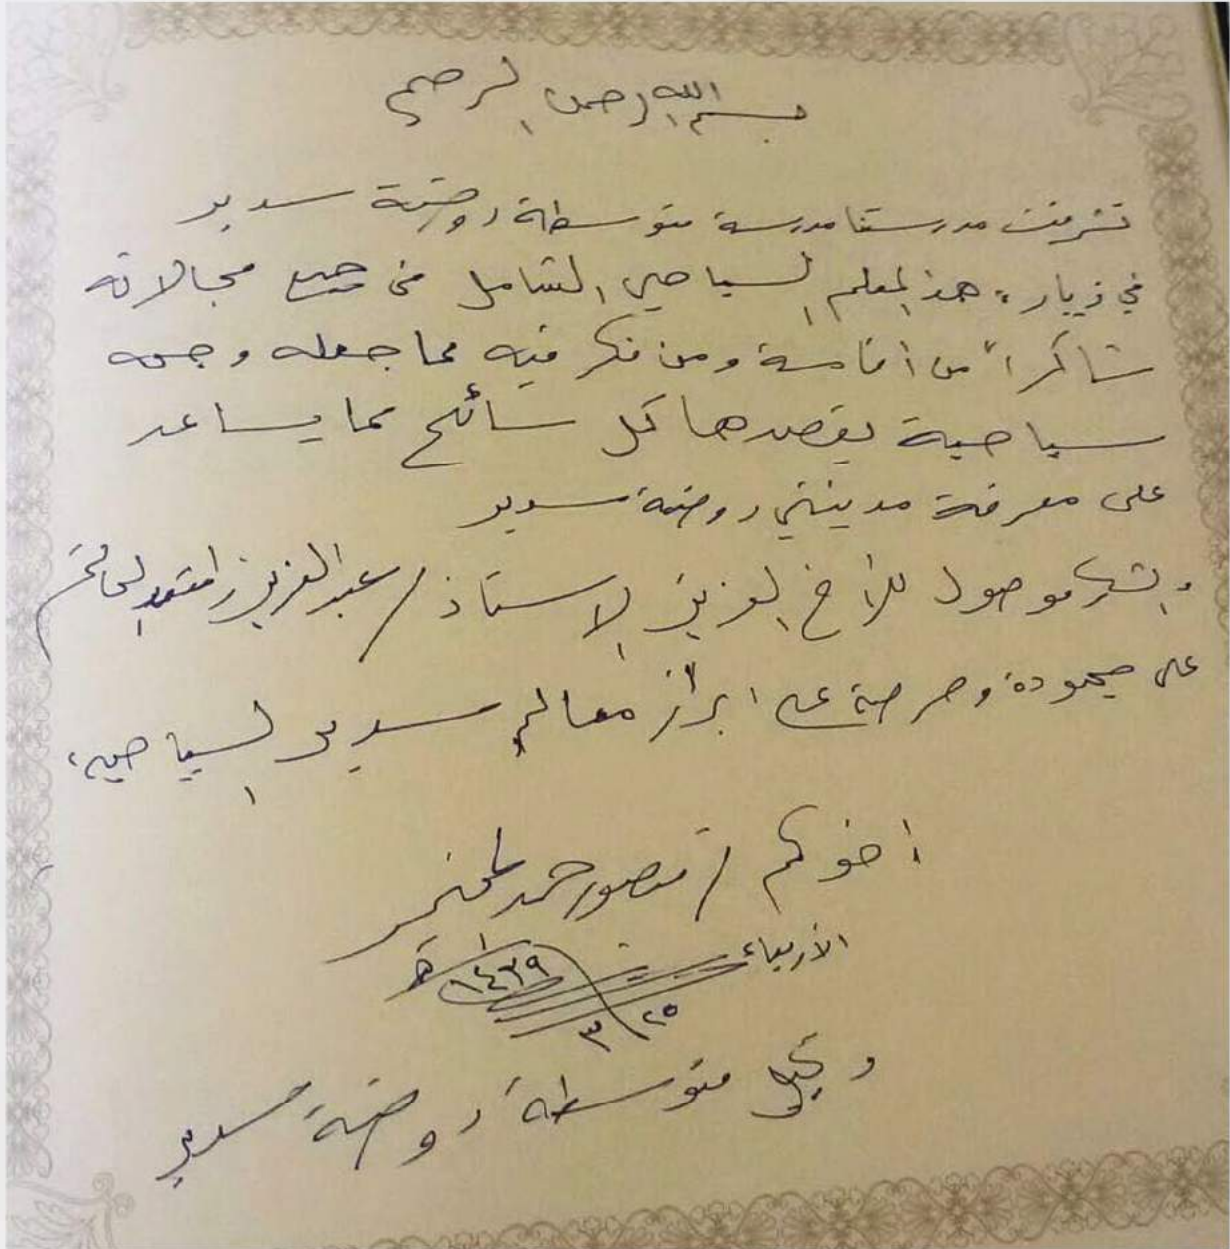 بسم الله الرحمن الرحيم
تشرفت مدرستنا مدرسة متوسطة روضة سدير
في زيارة هذا المعلم السياحي الشامل في جميع مجالاته
شاكراً من أقامه ومن فكر فيه مما جعله وجهه
سياحية يقصدها كل سائح مما يساعد
على معرفة مدينتي روضة سدير
والشكر موصول للأخ العزيز الاستاذ / عبدالعزيز
على مجهوده وحرصه على ابراز معالم سدير السياحيه،
اخوكم / منصور حمد
الأربعاء
٢٥ / ٣ / ١٤٣٩ هـ
وكيل متوسطة روضة سدير